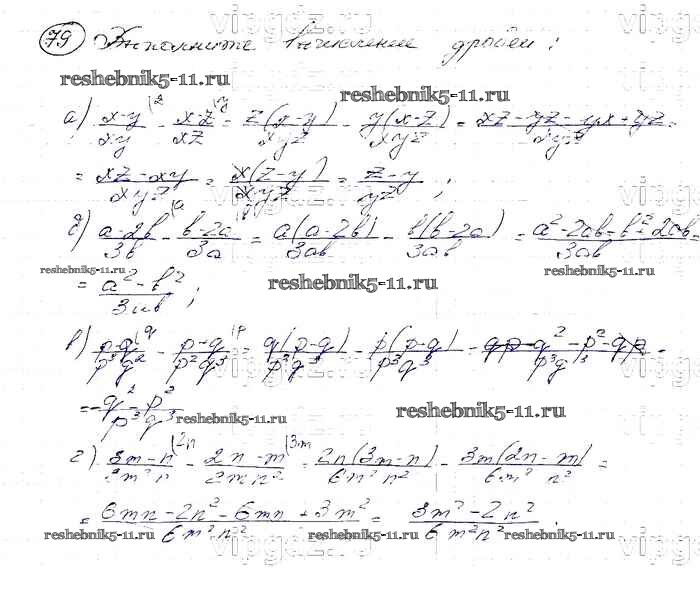 79 Выполните вычитание дробей:
reshebnik5-11.ru
reshebnik5-11.ru
а) x-y/xy |z - x-z/xz |y = z(x-y)/xyz - y(x-z)/xyz = xz-yz-yx+yz/xyz =
= xz-xy/xyz = x(z-y)/xyz = z-y/yz ;
б) a-2b/3b |a - b-2a/3a |b = a(a-2b)/3ab - b(b-2a)/3ab = a²-2ab-b²+2ab/3ab =
reshebnik5-11.ru reshebnik5-11.ru reshebnik5-11.ru
= a²-b²/3ab ;
в) p-q/p³q² |q - p-q/p²q³ |p = q(p-q)/p³q³ - p(p-q)/p³q³ = qp-q²-p²-qp/p³q³ =
= -q²-p²/p³q³
reshebnik5-11.ru reshebnik5-11.ru
г) 3m-n/3m²n |2n - 2n-m/2mn² |3m = 2n(3m-n)/6m²n² - 3m(2n-m)/6m²n² =
= 6mn-2n²-6mn+3m²/6m²n² = 3m²-2n²/6m²n² .
reshebnik5-11.ru reshebnik5-11.ru reshebnik5-11.ru